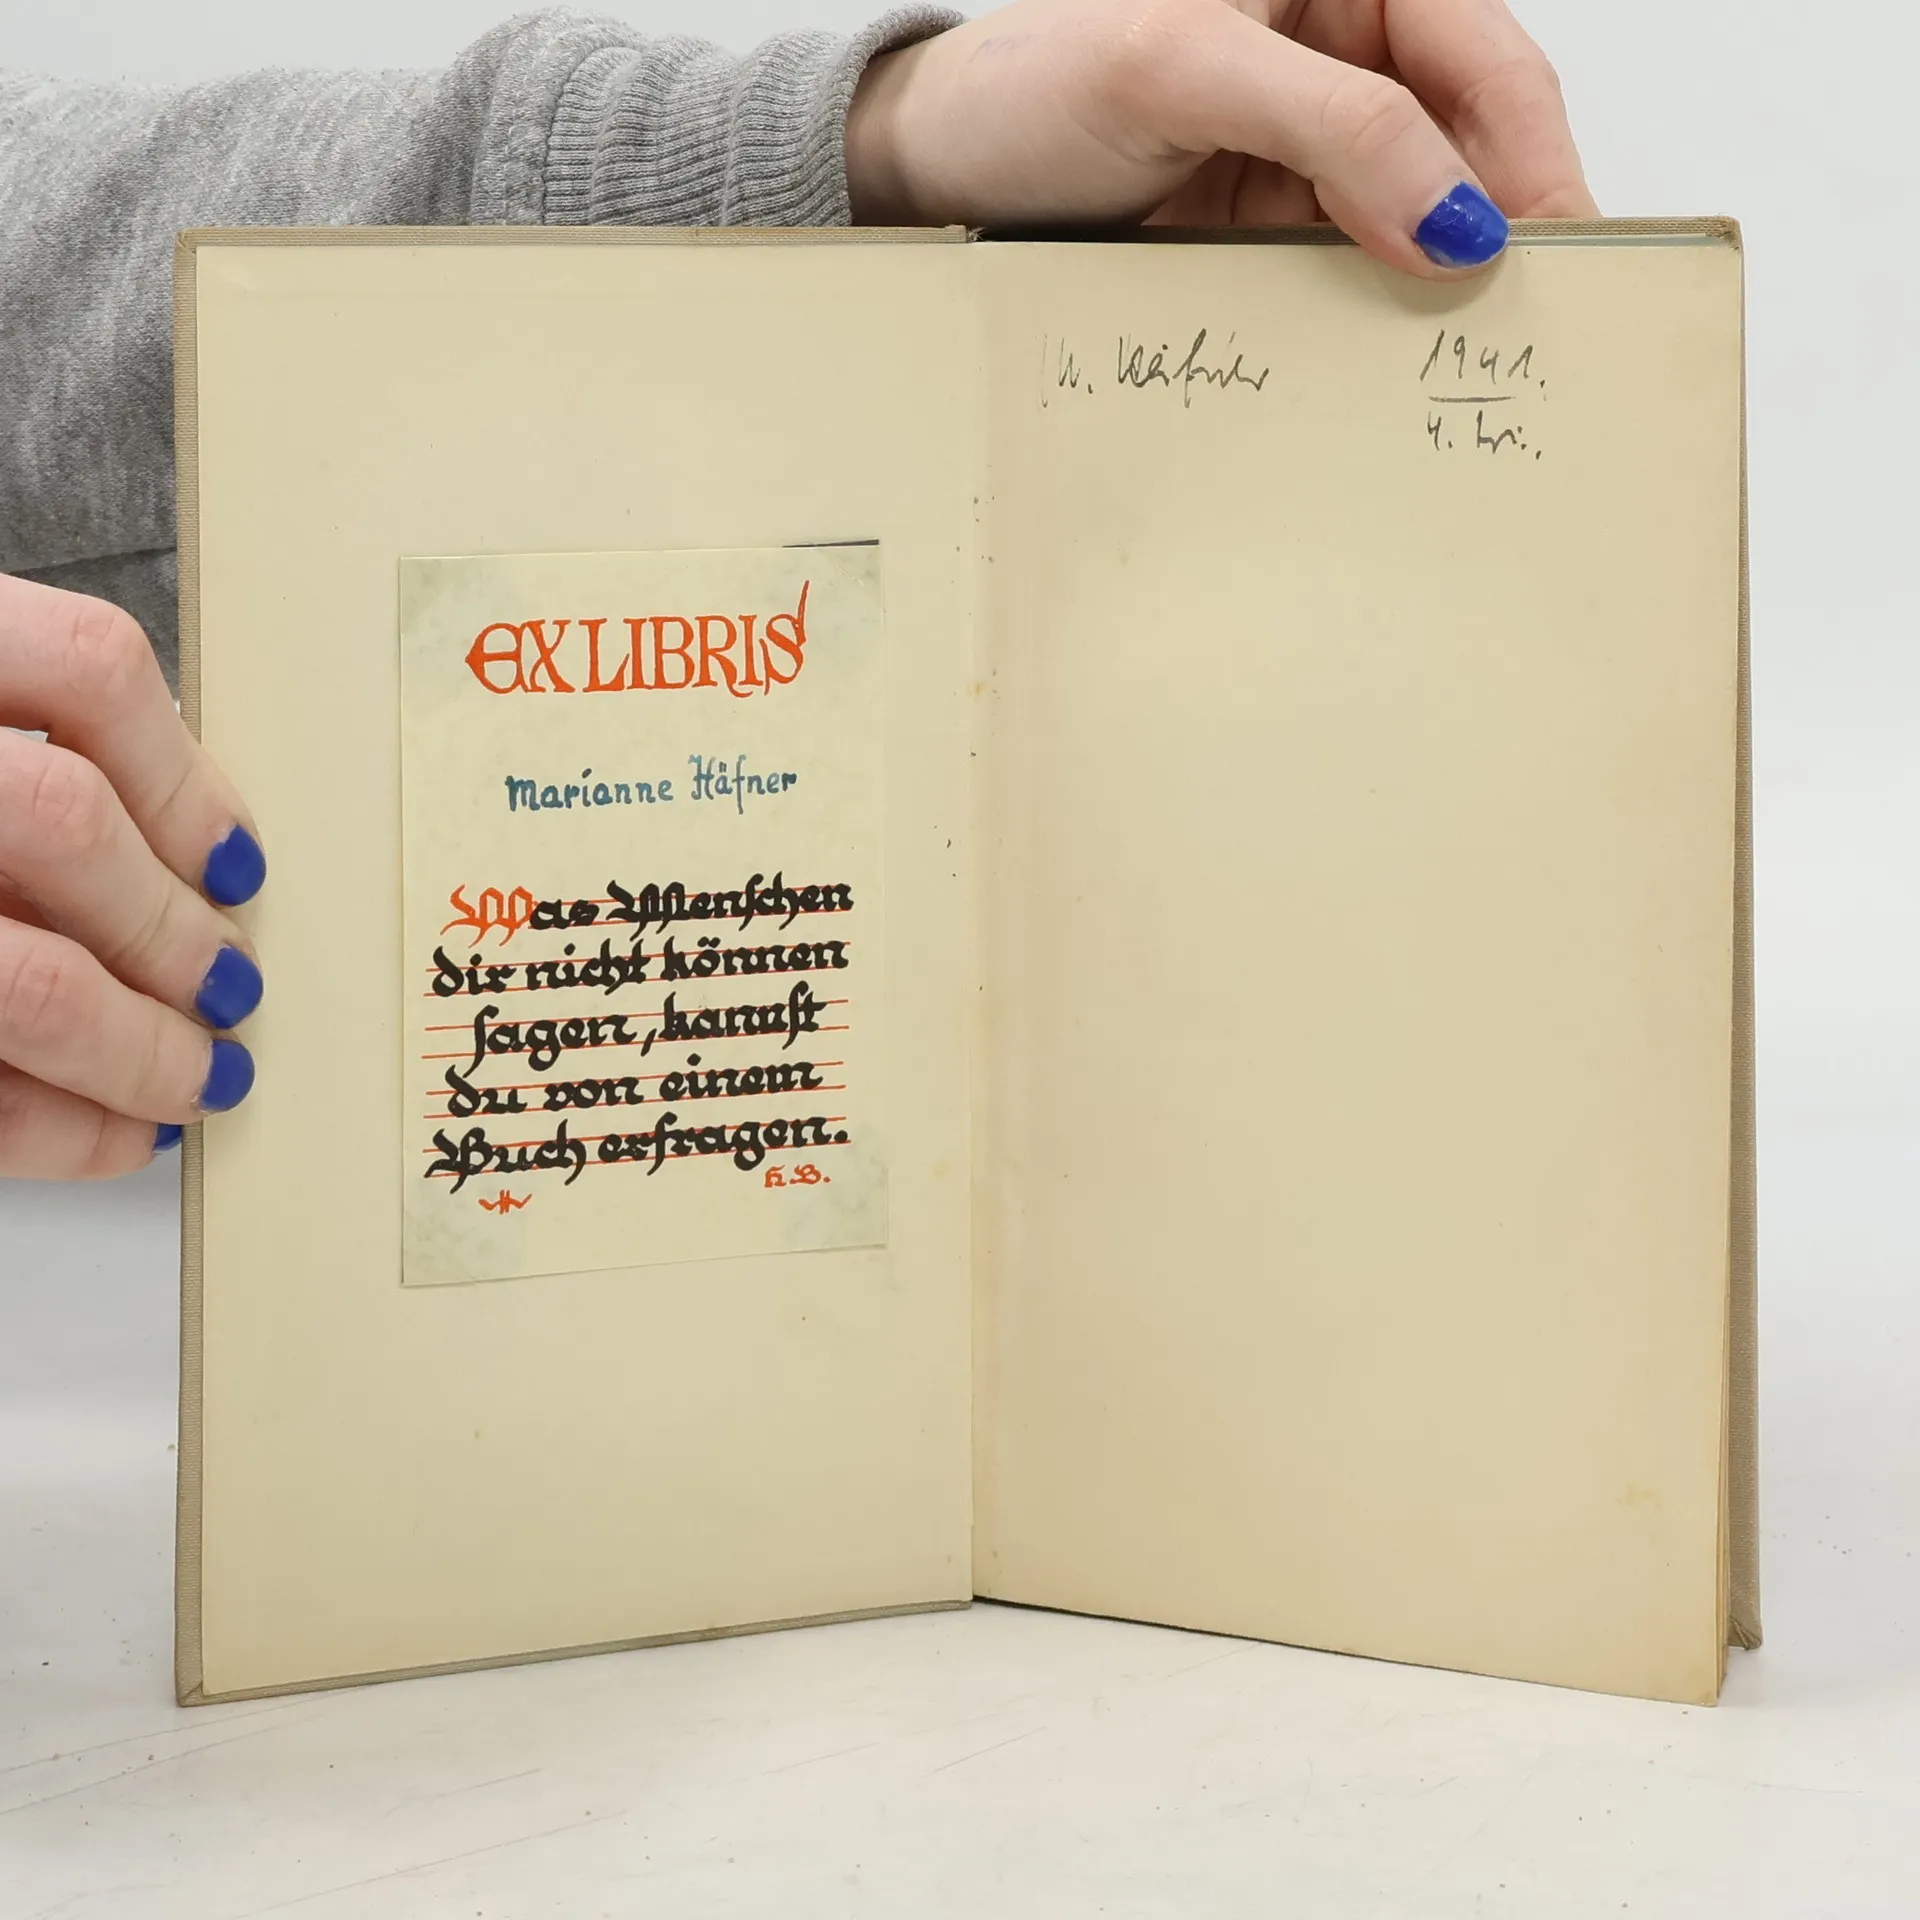 EX LIBRIS
Marianne Häfner
Was Menschen
dir nicht können
sagen, kannst
du von einem
Buch erfragen.
H.B.
1941.
4.